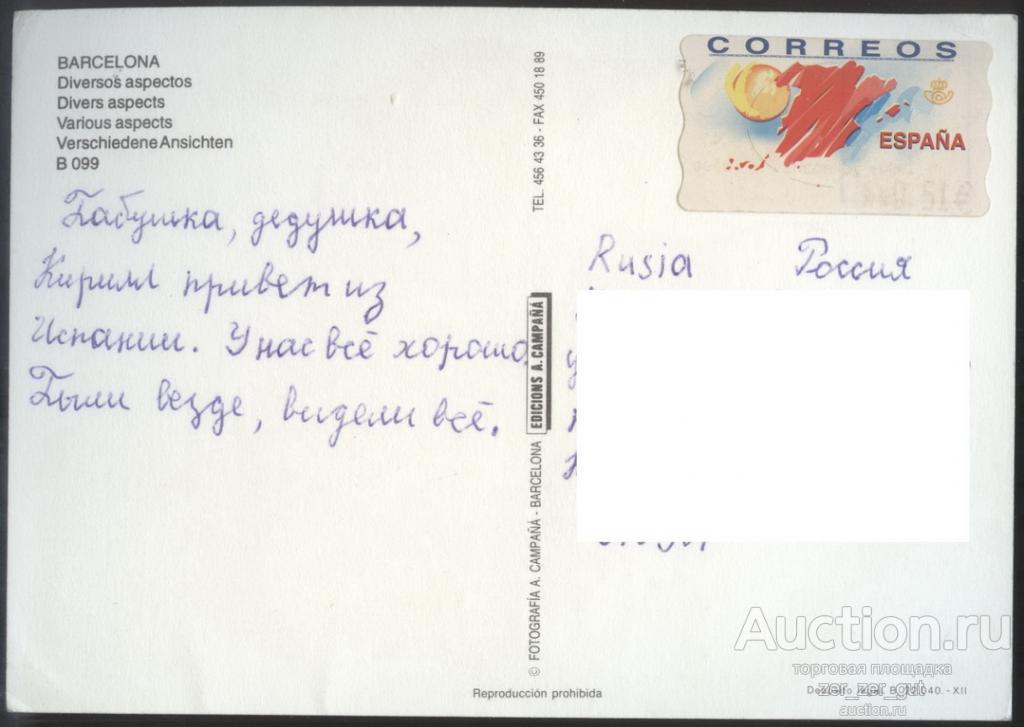 BARCELONA
Diversos aspectos
Divers aspects
Various aspects
Verschiedene Ansichten
B 099
Бабушка, дедушка,
Кирилл привет из
Испании. У нас всё хорошо.
Были везде, видели всё.
© FOTOGRAFÍA A. CAMPAÑÁ - BARCELONA
EDICIONS A. CAMPAÑÁ
TEL. 456 43 36 - FAX 450 18 89
CORREOS
ESPAÑA
Rusia Россия
Reproducción prohibida
Auction.ru
торговая площадка
zer_zer_gut
auction.ru